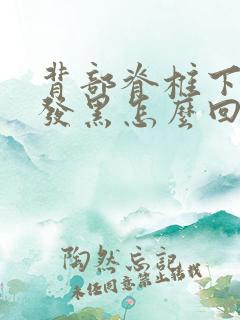 背部脊柱下
發黑怎麼回
陶然忘记
未经同意禁止转载